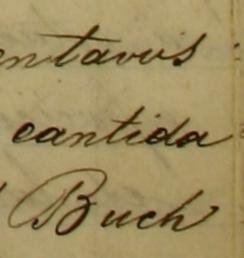 entavos
cantida
Buch